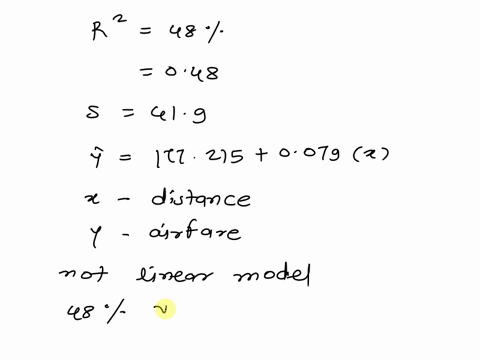 R² = 48%
= 0.48
S = 41.9
ŷ = 177.215 + 0.079 (x)
x - distance
Y - airfare
not linear model
48%